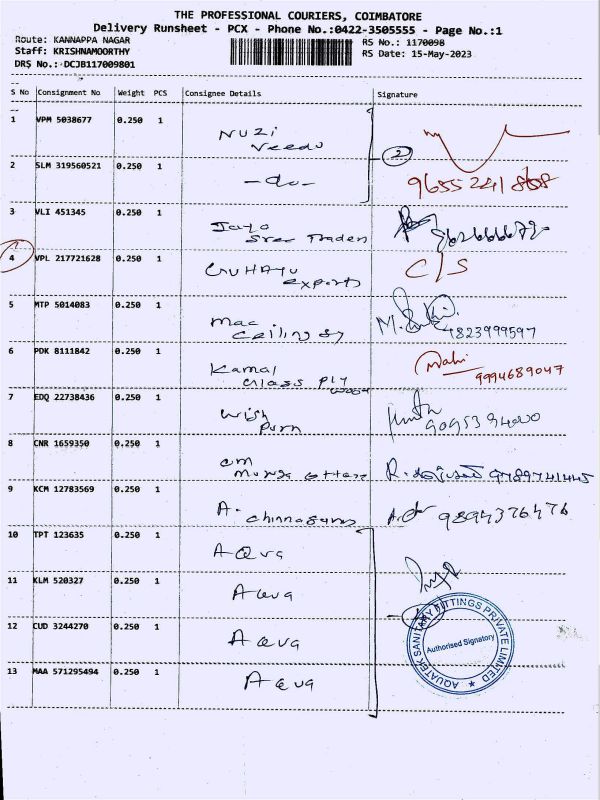 THE PROFESSIONAL COURIERS, COIMBATORE
Delivery Runsheet - PCX - Phone No.:0422-3505555 - Page No.:1
Route: KANNAPPA NAGAR
RS No.: 1170098
Staff: KRISHNAMOORTHY
RS Date: 15-May-2023
DRS No.: DCJB117009801
S No Consignment No Weight PCS Consignee Details Signature
1 VPM 5038677 0.250 1
NUZi
Veedu
2
2 SLM 319560521 0.250 1
-do-
9655241
3 VLI 451345 0.250 1
Sree Traders
4 VPL 217721628 0.250 1
C/S
exports
5 MTP 5014083 0.250 1
Mac
ceiling
9823999597
6 PDK 8111842 0.250 1
Kamal
Glass Ply
wood
9994689047
7 EDQ 22738436 0.250 1
Wish
8 CNR 1659350 0.250 1
9789741445
9 KCM 12783569 0.250 1
A.
9894376476
10 TPT 123635 0.250 1
AQva
11 KLM 520327 0.250 1
AQva
12 CUD 3244270 0.250 1
AQva
13 MAA 571295494 0.250 1
AQva
AQUATEK SANITARY FITTINGS PRIVATE LIMITED
Authorised Signatory